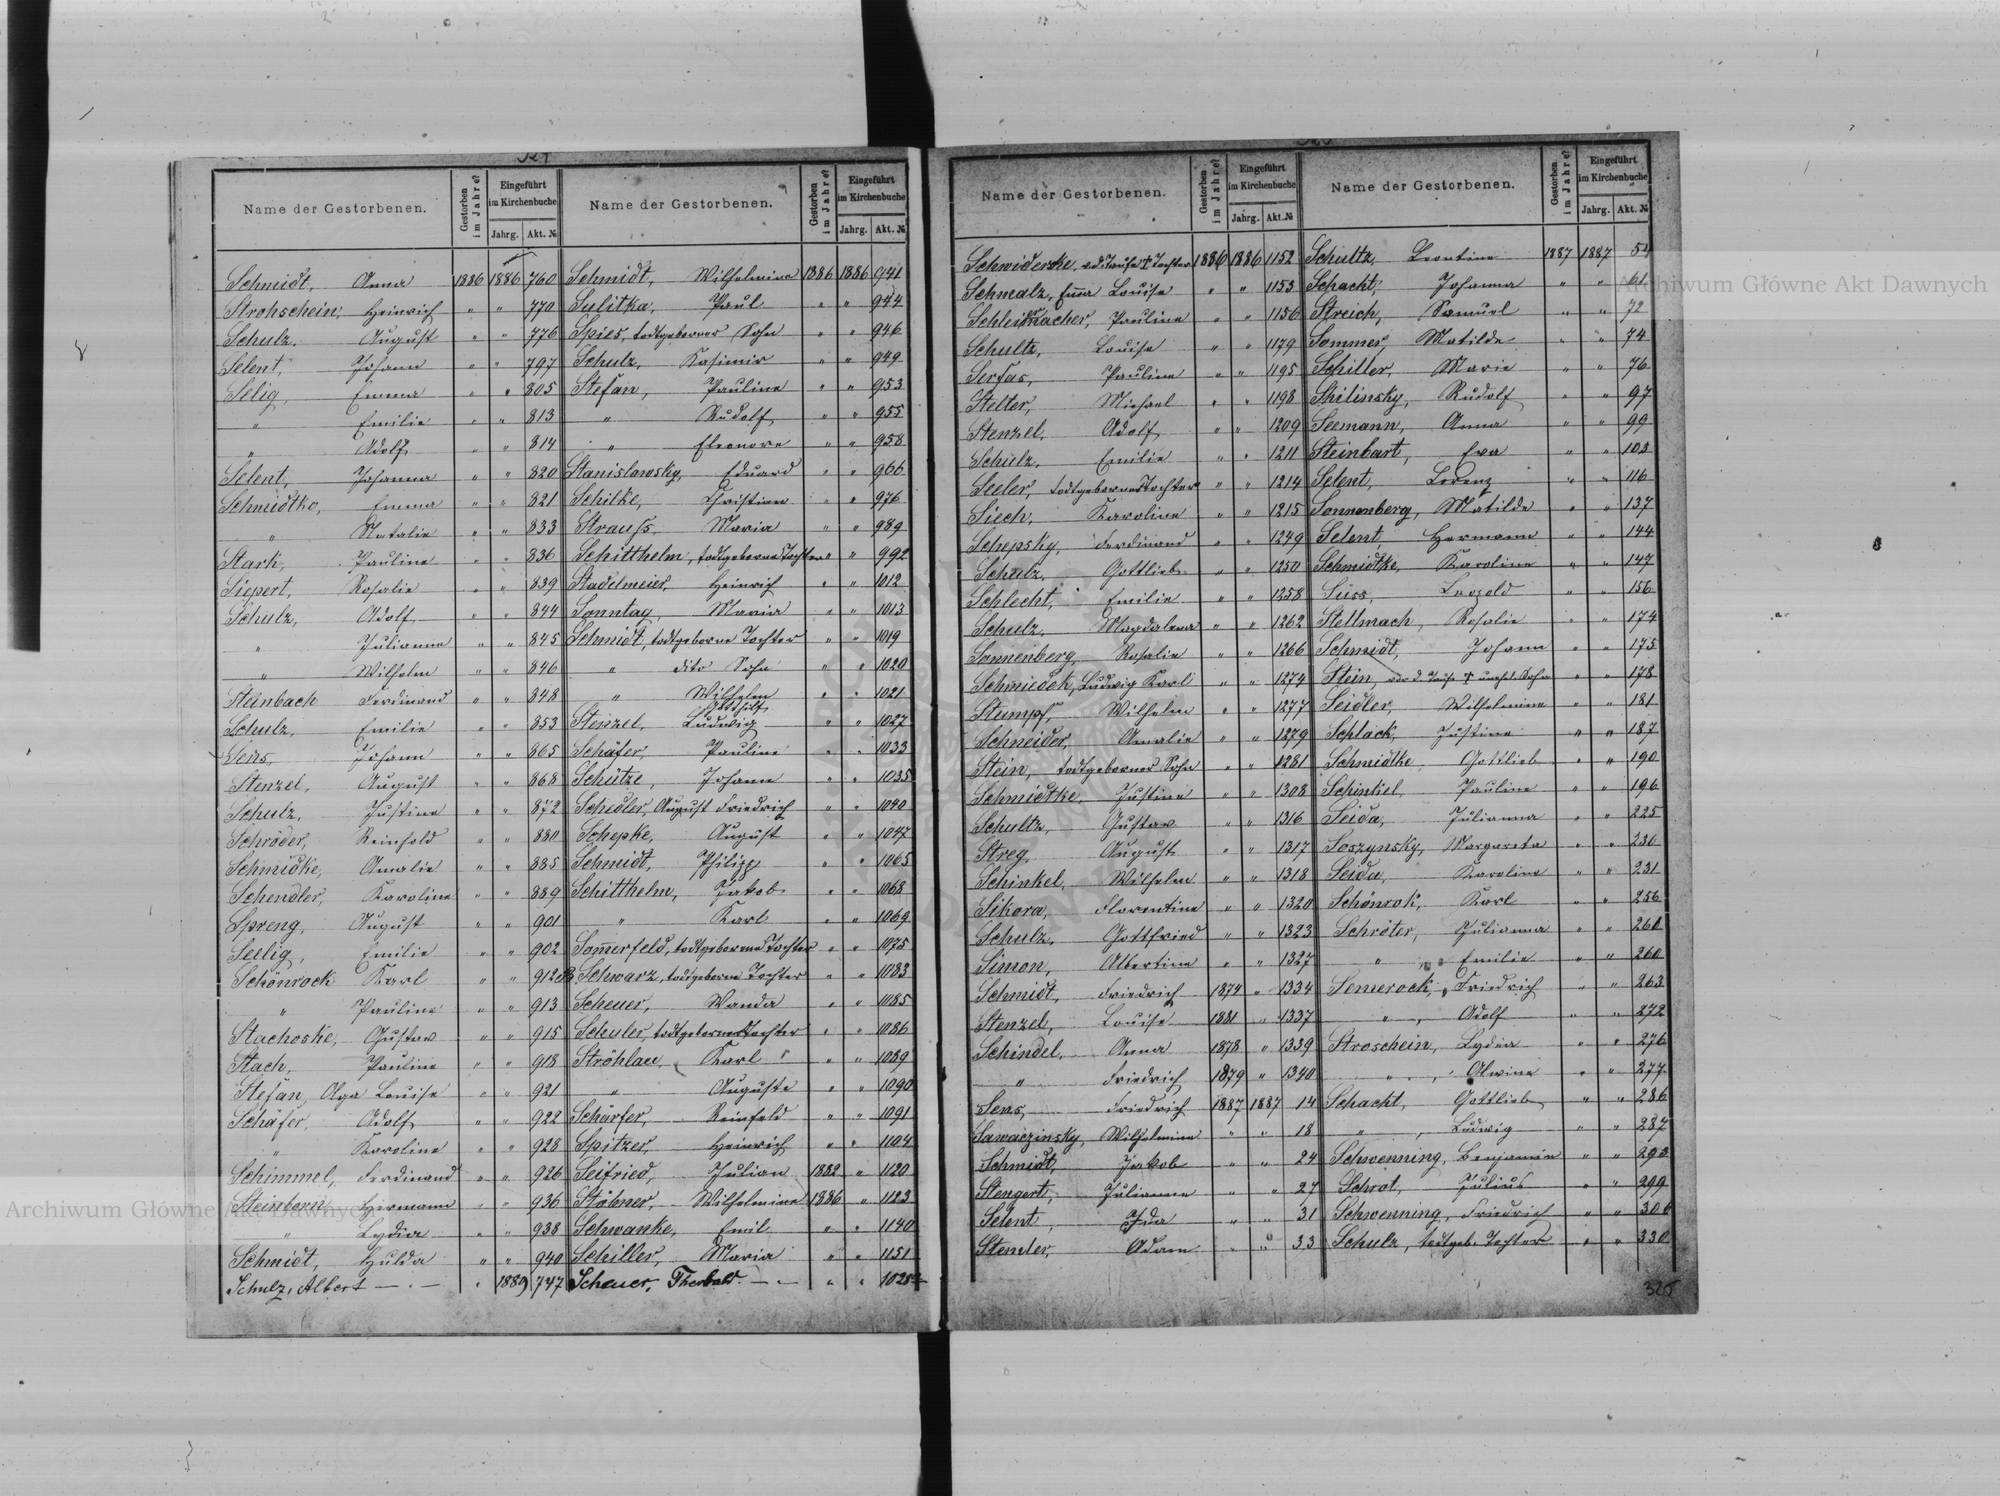 324
Name der Gestorbenen. Gestorben im Jahre? Eingeführt im Kirchenbuche Jahrg. Akt. №
Schmidt, Anna 1886 1886 760
Strohschein, Heinrich " " 770
Schulz, August " " 776
Selent, Johann " " 797
Selig, Emma " " 805
" Emilie " " 813
" Adolf " " 814
Selent, Johanna " " 820
Schmidtke, Emma " " 821
" Natalie " " 833
Stark, Pauline " " 836
Siepert, Rosalie " " 839
Schulz, Adolf " " 844
" Julianna " " 845
" Wilhelm " " 846
Steinbach Ferdinand " " 848
Schulz, Emilie " " 853
Sens, Johann " " 865
Stenzel, August " " 868
Schulz, Justine " " 872
Schröder, Reinhold " " 880
Schmidke, Amalie " " 885
Schendler, Karoline " " 889
Spreng, August " " 901
Seelig, Emilie " " 902
Schönrock Karl " " 912
" Pauline " " 913
Stachoske, Gustav " " 915
Stach, Pauline " " 918
Stefan, Olga Louise " " 921
Schäfer, Adolf " " 922
" Karoline " " 928
Schimmel, Ferdinand " " 926
Steinborn Hermann " " 936
" Lydia " " 938
Schmidt, Hulda " " 940
Schulz, Albert " 1889 747
Name der Gestorbenen. Gestorben im Jahre? Eingeführt im Kirchenbuche Jahrg. Akt. №
Schmidt, Wilhelmine 1886 1886 941
Sulitka, Paul " " 944
Spies, todtgeborner Sohn " " 946
Schulz, Kasimir " " 949
Stefan, Pauline " " 953
" Rudolf " " 955
" Eleonore " " 958
Stanislowsky, Eduard " " 966
Schilke, Christian " " 976
Strauss, Maria " " 989
Schitthelm, todtgeborne Tochter " " 992
Stadelmeier, Heinrich " " 1012
Sonntag, Maria " " 1013
Schmidt, todtgeborne Tochter " " 1019
" dito Sohn " " 1020
" Wilhelm " " 1021
Stenzel, Gotthilf Ludwig " " 1027
Schäfer, Pauline " " 1033
Schütze, Johann " " 1035
Schedler, August Friedrich " " 1040
Schepke, August " " 1047
Schmidt, Philipp " " 1065
Schitthelm, Jakob " " 1068
" Karl " " 1069
Somerfeld, todtgeborne Tochter " " 1075
Schwarz, todtgeborne Tochter " " 1083
Scheuer, Wanda " " 1085
Schuler, todtgeborne Tochter " " 1086
Ströhlau, Karl " " 1089
" Auguste " " 1090
Schärfer, Reinhold " " 1091
Spitzer, Heinrich " " 1104
Seifried, Julian 1882 " 1120
Stäbner, Wilhelmine 1886 " 1123
Schwanke, Emil " " 1140
Schiller, Maria " " 1151
Scheuer, " "
Name der Gestorbenen. Gestorben im Jahre? Eingeführt im Kirchenbuche Jahrg. Akt. №
Schwiderke, v. d. Taufe † Tochter 1886 1886 1152
Schmalz, Ema Louise " " 1153
Schleifmacher, Pauline " " 1156
Schultz, Louise " " 1179
Serfas, Pauline " " 1195
Stelter, Michael " " 1198
Stenzel, Adolf " " 1209
Schulz, Emilie " " 1211
Seeler, todtgeborne Tochter " " 1214
Siech, Karoline " " 1215
Schepsky, Ferdinand " " 1249
Schulz, Gottlieb " " 1250
Schlecht, Emilie " " 1258
Schulz, Magdalena " " 1262
Sonnenberg, Rosalie " " 1266
Schmiedek, Ludwig Karl " " 1274
Stumpf, Wilhelm " " 1277
Schneider, Amalie " " 1279
Stein, todtgeborner Sohn " " 1281
Schmidtke, Justine " " 1308
Schultz, Gustav " " 1316
Streg, August " " 1317
Schinkel, Wilhelm " " 1318
Sikora, Florentine " " 1320
Schulz, Gottfried " " 1323
Simon, Albertine " " 1327
Schmidt, Friedrich 1874 " 1334
Stenzel, Louise 1881 " 1337
Schindel, Anna 1878 " 1339
" Friedrich 1879 " 1340
Sens, Friedrich 1887 1887 14
Sawaczinsky, Wilhelmine " " 18
Schmidt, Jakob " " 24
Stengert, Julianna " " 27
Selent, Ida " " 31
Stemler, Adam " " 33
Name der Gestorbenen. Gestorben im Jahre? Eingeführt im Kirchenbuche Jahrg. Akt. №
Schultz, Leontine 1887 1887 54
Schacht, Johanna " " 61
Streich, Samuel " " 72
Sommer, Matilde " " 74
Schiller, Marie " " 76
Shilinsky, Rudolf " " 97
Seemann, Anna " " 99
Steinbart, Eva " " 103
Selent, Lorenz " " 116
Sonnenberg, Matilde " " 137
Selent Hermann " " 144
Schmidtke, Karoline " " 147
Süss, Leopold " " 156
Stellmach, Rosalie " " 174
Schmidt, Johann " " 175
Stein, vor d. Taufe † Sohn " " 178
Seidler, Wilhelmine " " 181
Schlack, Justine " " 187
Schmidtke, Gottlieb " " 190
Schinkel, Pauline " " 196
Seida, Julianna " " 225
Soszynsky, Margareta " " 230
Seida, Karoline " " 231
Schönrok, Karl " " 256
Schröter, Julianna " " 261
" Emilie " " 260
Semerock, Friedrich " " 263
" Adolf " " 272
Stroschein, Lydia " " 276
" Olwine " " 277
Schacht, Gottlieb " " 286
" Ludwig " " 287
Schwenning, Benjamin " " 293
Schrot, Julius " " 299
Schwenning, Friedrich " " 306
Schulz, todtgeb. Tochter " " 330
325
Archiwum Główne Akt Dawnych
Archiwum Główne Akt Dawnych